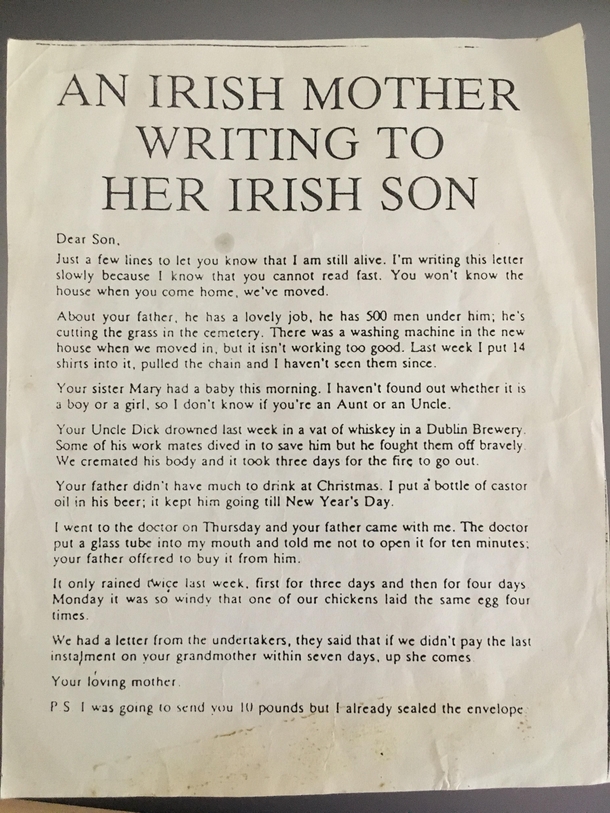 AN IRISH MOTHER
WRITING TO
HER IRISH SON
Dear Son,
Just a few lines to let you know that I am still alive. I'm writing this letter
slowly because I know that you cannot read fast. You won't know the
house when you come home, we've moved.
About your father, he has a lovely job, he has 500 men under him; he's
cutting the grass in the cemetery. There was a washing machine in the new
house when we moved in, but it isn't working too good. Last week I put 14
shirts into it, pulled the chain and I haven't seen them since.
Your sister Mary had a baby this morning. I haven't found out whether it is
a boy or a girl, so I don't know if you're an Aunt or an Uncle.
Your Uncle Dick drowned last week in a vat of whiskey in a Dublin Brewery.
Some of his work mates dived in to save him but he fought them off bravely.
We cremated his body and it took three days for the fire to go out.
Your father didn't have much to drink at Christmas. I put a bottle of castor
oil in his beer; it kept him going till New Year's Day.
I went to the doctor on Thursday and your father came with me. The doctor
put a glass tube into my mouth and told me not to open it for ten minutes;
your father offered to buy it from him.
It only rained twice last week, first for three days and then for four days
Monday it was so windy that one of our chickens laid the same egg four
times.
We had a letter from the undertakers, they said that if we didn't pay the last
instalment on your grandmother within seven days, up she comes
Your loving mother.
P S I was going to send you 10 pounds but I already sealed the envelope.